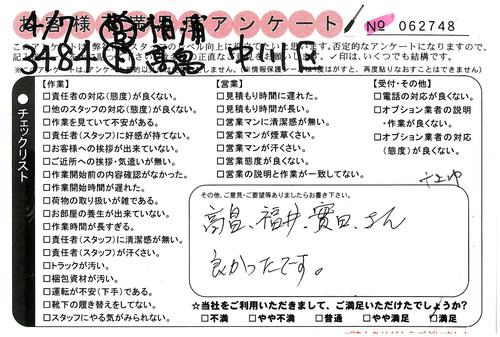 お客様 アンケート
4/7 ㊢
№ 062748
3484
高畠 中川区
✓印は、いくつでも結構です。
チェックリスト
【作業】
□責任者の対応(態度)が良くない。
□他のスタッフの対応(態度)が良くない。
□作業を見ていて不安がある。
□責任者(スタッフ)に好感が持てない。
□お客様への挨拶が出来ていない。
□ご近所への挨拶・気遣いが無い。
□作業開始前の内容確認がなかった。
□作業開始時間が遅れた。
□荷物の取り扱いが雑である。
□お部屋の養生が出来ていない。
□作業時間が長すぎる。
□責任者(スタッフ)に清潔感が無い。
□責任者(スタッフ)が汗くさい。
□トラックが汚い。
□梱包資材が汚い。
□運転が不安(下手)である。
□靴下の履き替えをしてない。
□スタッフにやる気がみられない。
【営業】
□見積もり時間に遅れた。
□見積もり時間が長い。
□営業マンに清潔感が無い。
□営業マンが煙草くさい。
□営業マンが汗くさい。
□営業態度が良くない。
□営業の説明と作業が一致してない。
【受付・その他】
□電話の対応が良くない。
□オプション業者の説明・作業が良くない。
□オプション業者の対応(態度)が良くない。
その他、ご意見・ご要望等ありましたらお書き下さい。
高畠、福井、寳田、さん
良かったです。
☆当社をご利用いただきまして、ご満足いただけたでしょうか?
□不満 □やや不満 □普通 □やや満足 □満足